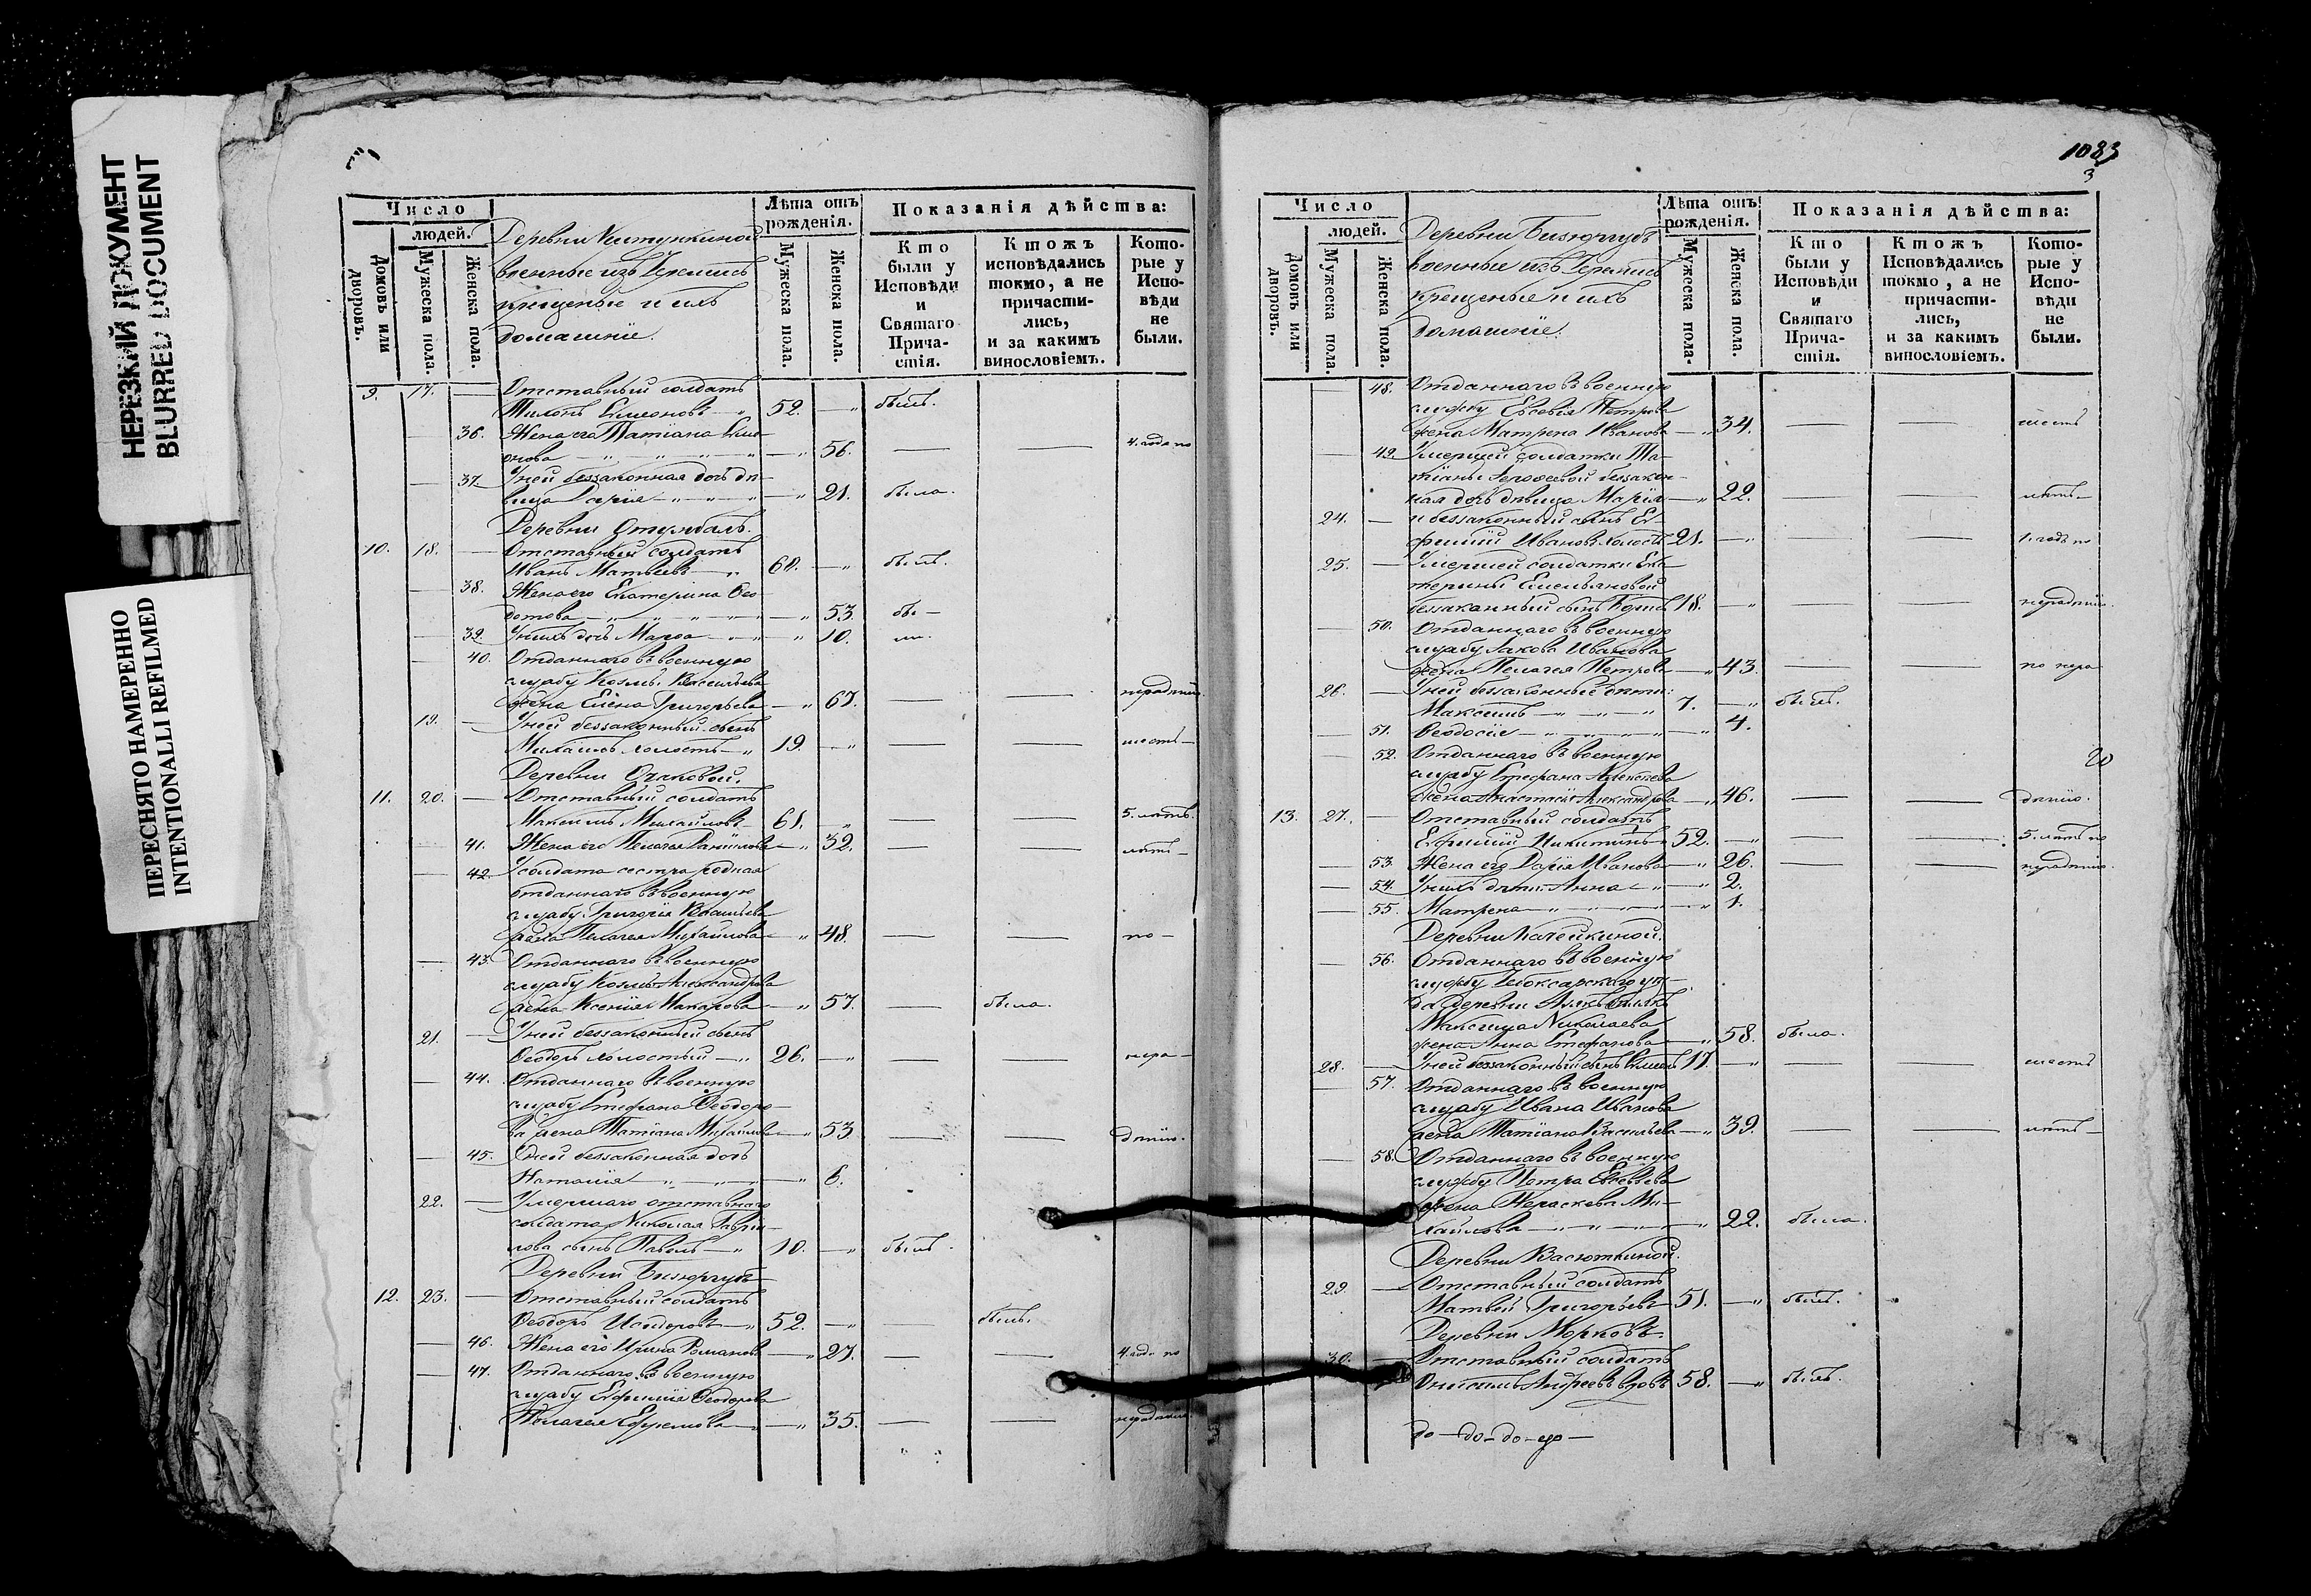 НЕРЕЗКИЙ ДОКУМЕНТ
BLURRED DOCUMENT
ПЕРЕСНЯТО НАМЕРЕННО
INTENTIONALLI REFILMED
Число
людей.
Домовъ или дворовъ.
Мужеска пола.
Женска пола.
Деревни
военные изъ Черемисъ
крещеные и ихъ
домашніе.
Лѣта отъ рожденія.
Мужеска пола.
Женска пола.
Показанія дѣйства:
Кто были у Исповѣди и Святаго Причастія.
Ктожъ исповѣдались токмо, а не причастились, и за какимъ винословіемъ.
Которые у Исповѣди не были.
9. 17. — Отставный солдатъ
Тихонъ Симеоновъ — 52. — былъ.
— 36. Жена его Татіана Симе-
онова — 56. — — 4. года по
— 37. У ней беззаконная дочь дѣ-
вица Дарія — 21. была.
Деревни
10. 18. — Отставный солдатъ
Иванъ Матвѣевъ — 60. — былъ.
— 38. Жена его Екатерина Ѳео-
дотова — 53. бы —
— 39. У нихъ дочь Марѳа — 10. ли.
— 40. Отданнаго въ военную
службу Козмы Васильева
жена Елена Григорьева — 67. — — нерадѣнію.
19. — У ней беззаконный сынъ
Михаилъ холостъ — 19. — — —
Деревни Очиковой.
11. 20. — Отставный солдатъ
Максимъ Михайловъ 61. — — 5. лѣтъ.
— 41. Жена его Пелагея Даніилова — 32. —
— 42. У солдата сестра родная
отданнаго въ военную
службу Григорія Васильева
жена Пелагея Михайлова — 48. — — по —
— 43. Отданнаго въ военную
службу Козмы Александрова
жена Ксенія Макарова — 57. — была.
21. — У ней беззаконный сынъ
Ѳеодоръ холостый — 26. — — — нера —
— 44. Отданнаго въ военную
службу Стефана Ѳеодоро-
ва жена Татіана Михайлова — 53 — — дѣнію.
— 45. У ней беззаконная дочь
Наталія — 6.
22. — Умершаго отставнаго
солдата Николая Гаврі-
лова сынъ Павелъ — 10. — былъ.
Деревни Бизюргубъ
12. 23. — Отставный солдатъ
Ѳеодоръ Исидоровъ — 52. — — былъ.
— 46. Жена его Ирина Романова — 27. — — 4. года по
— 47. Отданнаго въ военную
службу Евфимія Ѳеодорова
Пелагея Ефремова — 35. — — нерадѣнію
1083
3
Число
людей.
Домовъ или дворовъ.
Мужеска пола.
Женска пола.
Деревни Бизюргубъ
военные изъ Черемисъ
крещеные и ихъ
домашніе.
Лѣта отъ рожденія.
Мужеска пола.
Женска пола.
Показанія дѣйства:
Кто были у Исповѣди и Святаго Причастія.
Ктожъ Исповѣдались токмо, а не причастились, и за какимъ винословіемъ.
Которые у Исповѣди не были.
— 48. Отданнаго въ военную
службу Евсевія Петрова
жена Матрена Иванова — 34. — —
— 49. Умершей солдатки Та-
тіаны беззакон-
ная дочь дѣвица Марія — 22. — лѣтъ —
24. — и беззаконный сынъ Ев-
фимій Ивановъ холостъ 21. — — — 1. годъ по
25. — Умершей солдатки Ека-
терины Емельяновой
беззаконный сынъ 18. — — — нерадѣнію.
— 50. Отданнаго въ военную
службу Іакова Иванова
жена Пелагея Петрова — 43. — — по нера
26. — У ней беззаконные дѣти:
Максимъ — 7. — былъ.
— 51. Ѳеодосія — 4.
20
— 52. Отданнаго въ военную
службу Стефана Алексѣева
жена Анастасія Александрова — 46. — — дѣнію.
13. 27. — Отставный солдатъ
Евфимій Никитинъ 52. — — — 5. лѣтъ по
— 53. Жена его Дарія Иванова — 26. — — нерадѣнію.
— 54. У нихъ дѣти: Анна — 2.
— 55. Матрена — 1.
Деревни Качейкиной.
— 56. Отданнаго въ военную
службу Чебоксарскаго уѣ-
да деревни
Максима Николаева
жена Анна Стефанова — 58. была.
28. — У ней беззаконный сынъ 17. — — —
— 57. Отданнаго въ военную
службу Ивана Иванова
жена Татіана Васильева — 39. — — лѣтъ —
— 58. Отданнаго въ военную
службу Петра Евсевіева
жена Параскева Ми-
хайлова — 22. была.
Деревни Васюткиной.
29. — Отставный солдатъ
Матвѣй Григорьевъ — 51. — былъ.
Деревни Морковъ
30. — Отставный солдатъ
Онисимъ Андреевъ вдовъ 58. — былъ.